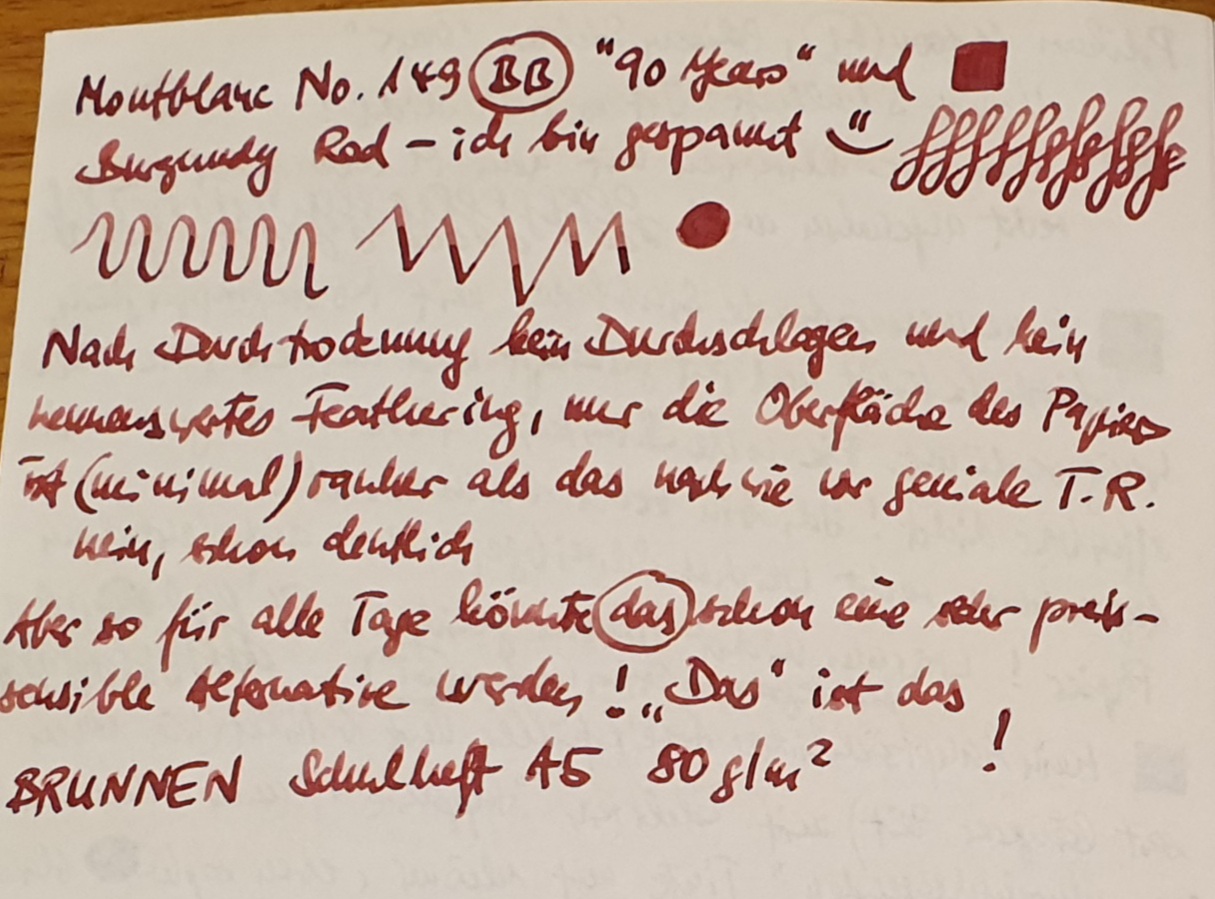 Montblanc No. 149 BB "90 Years" und
Burgundy Red – ich bin gespannt
Nach Durchtrocknung kein Durchschlagen und kein
nennenswertes Feathering, nur die Oberfläche des Papiers
ist (minimal) rauher als das nach wie vor geniale T.R.
nein, schon deutlich
Aber so für alle Tage könnte das schon eine sehr preis-
sensible Alternative werden! „Das“ ist das
BRUNNEN Schulheft A5 80 g/m² !